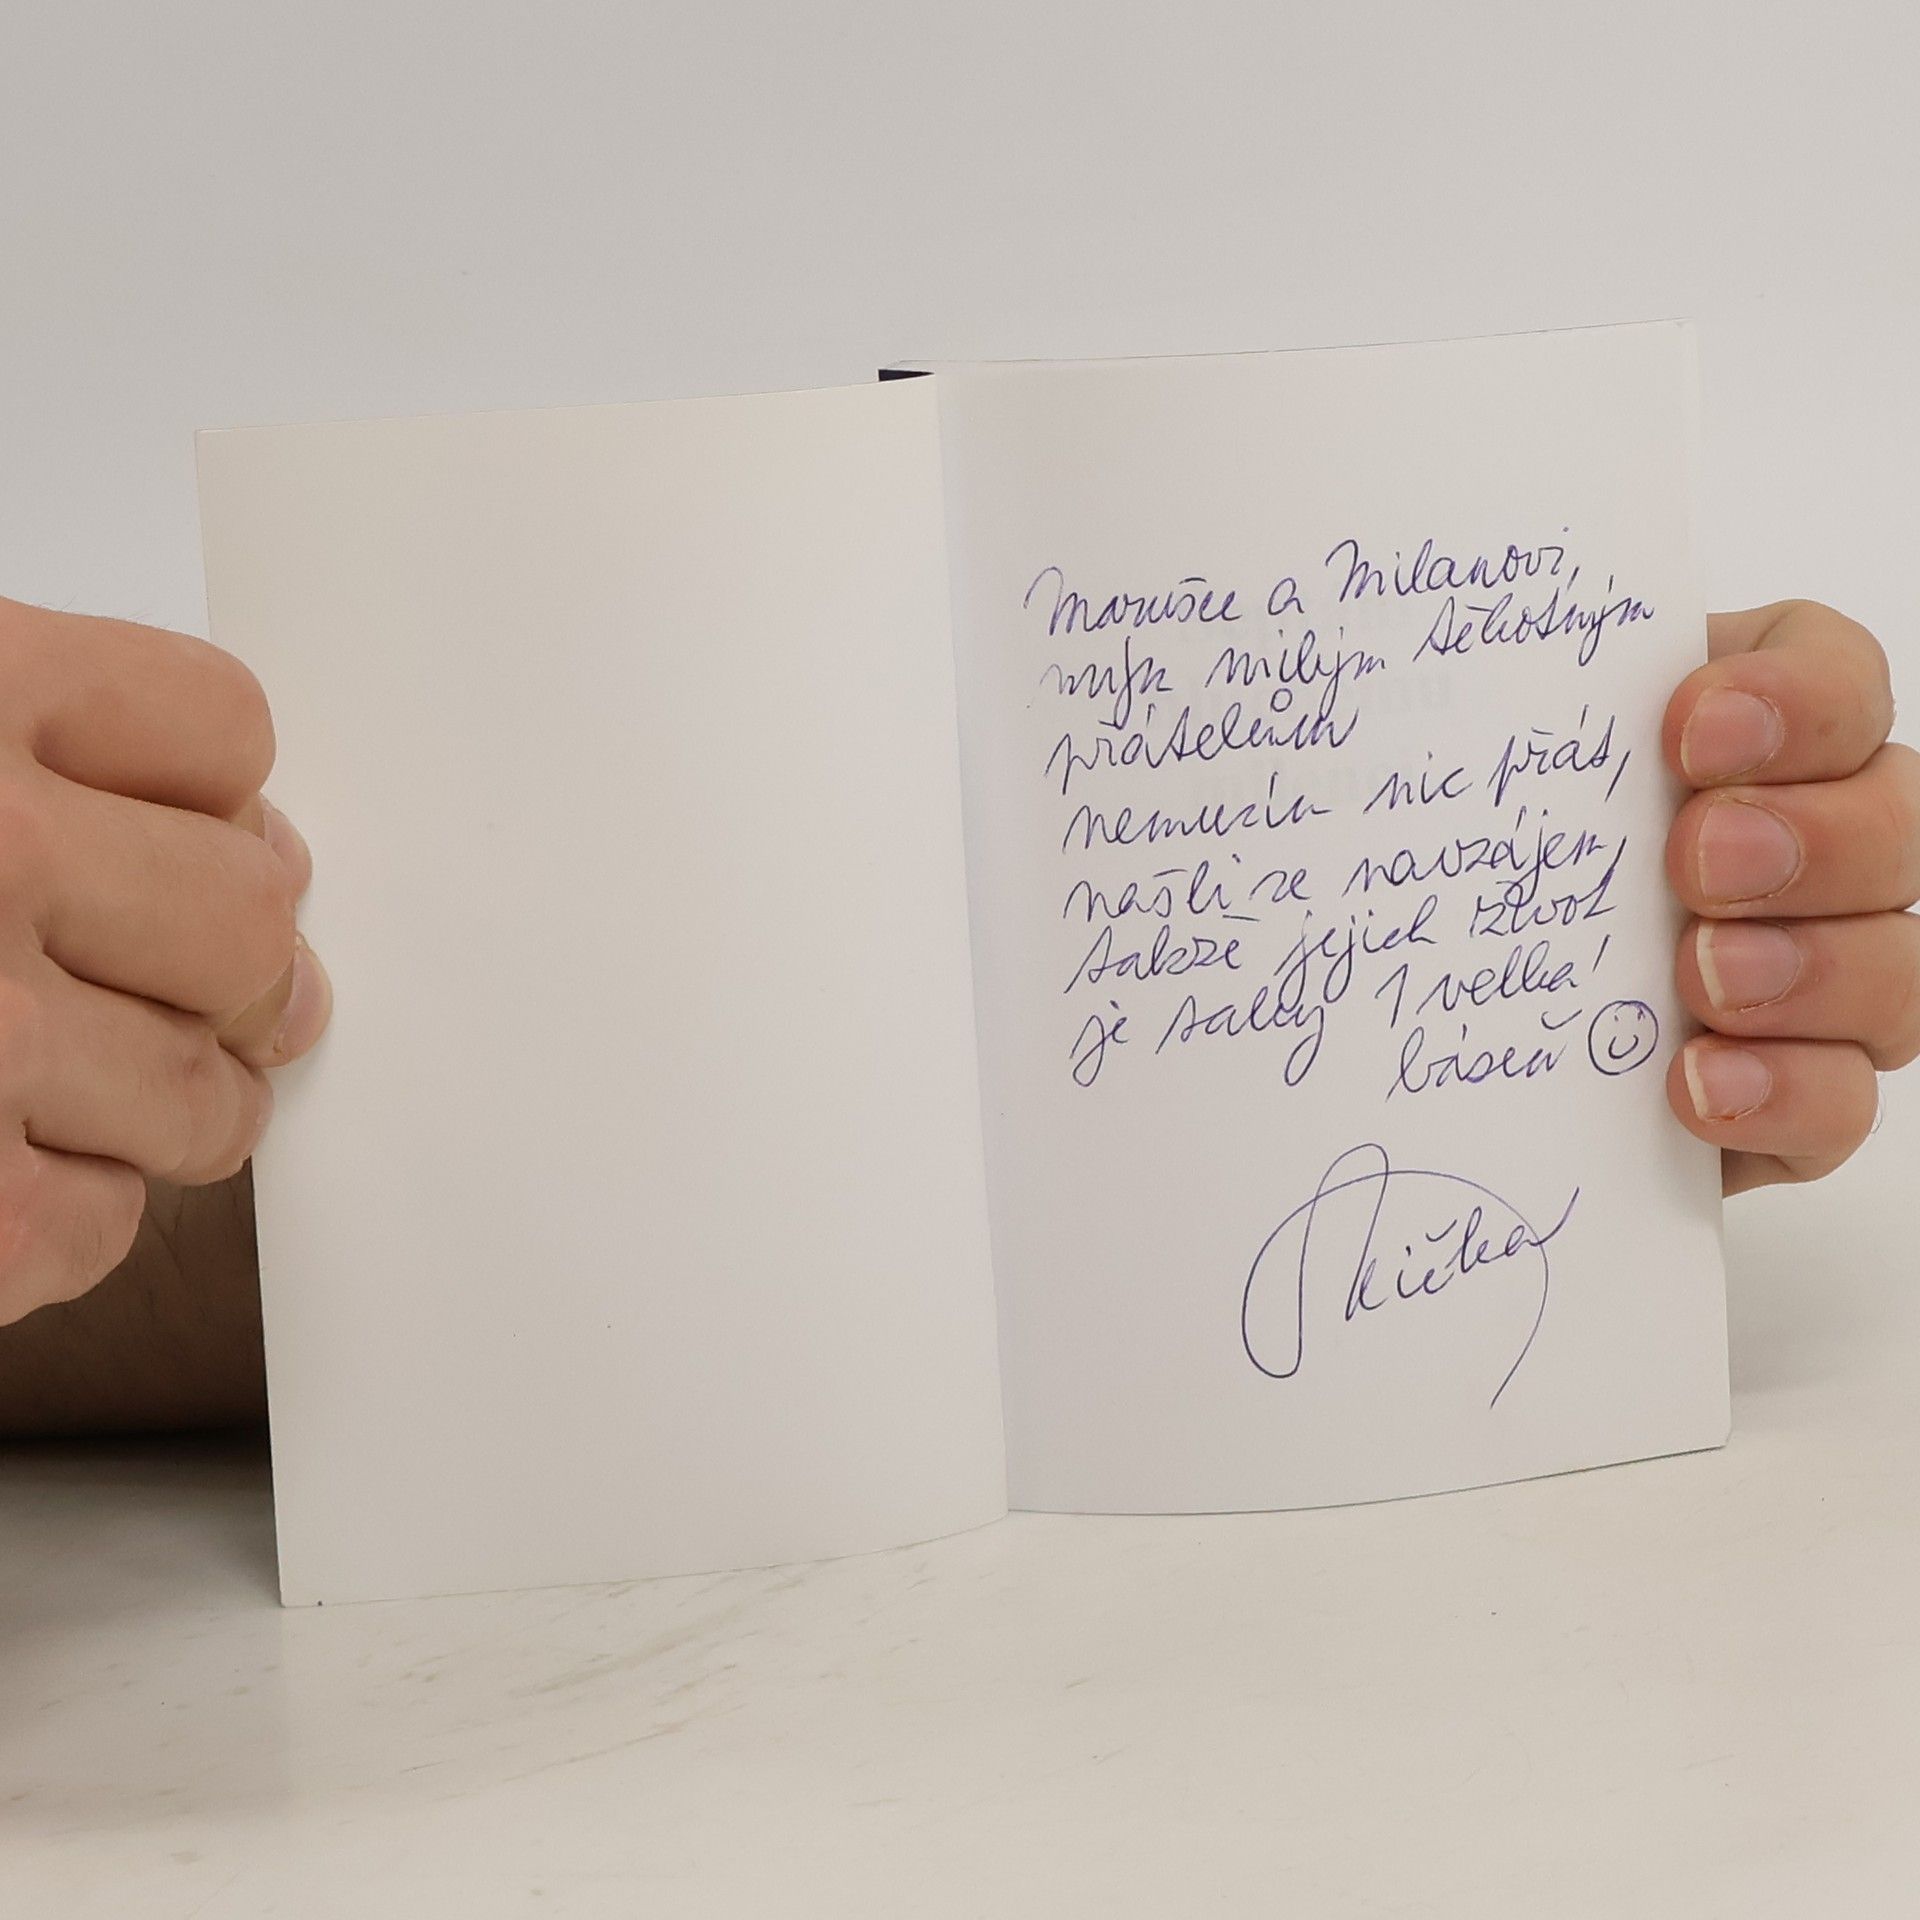 Marušce a Milanovi,
mým milým těhotným
přátelům
nemusím nic přát,
našli se navzájem,
takže jejich život
je taky 1 velká
báseň